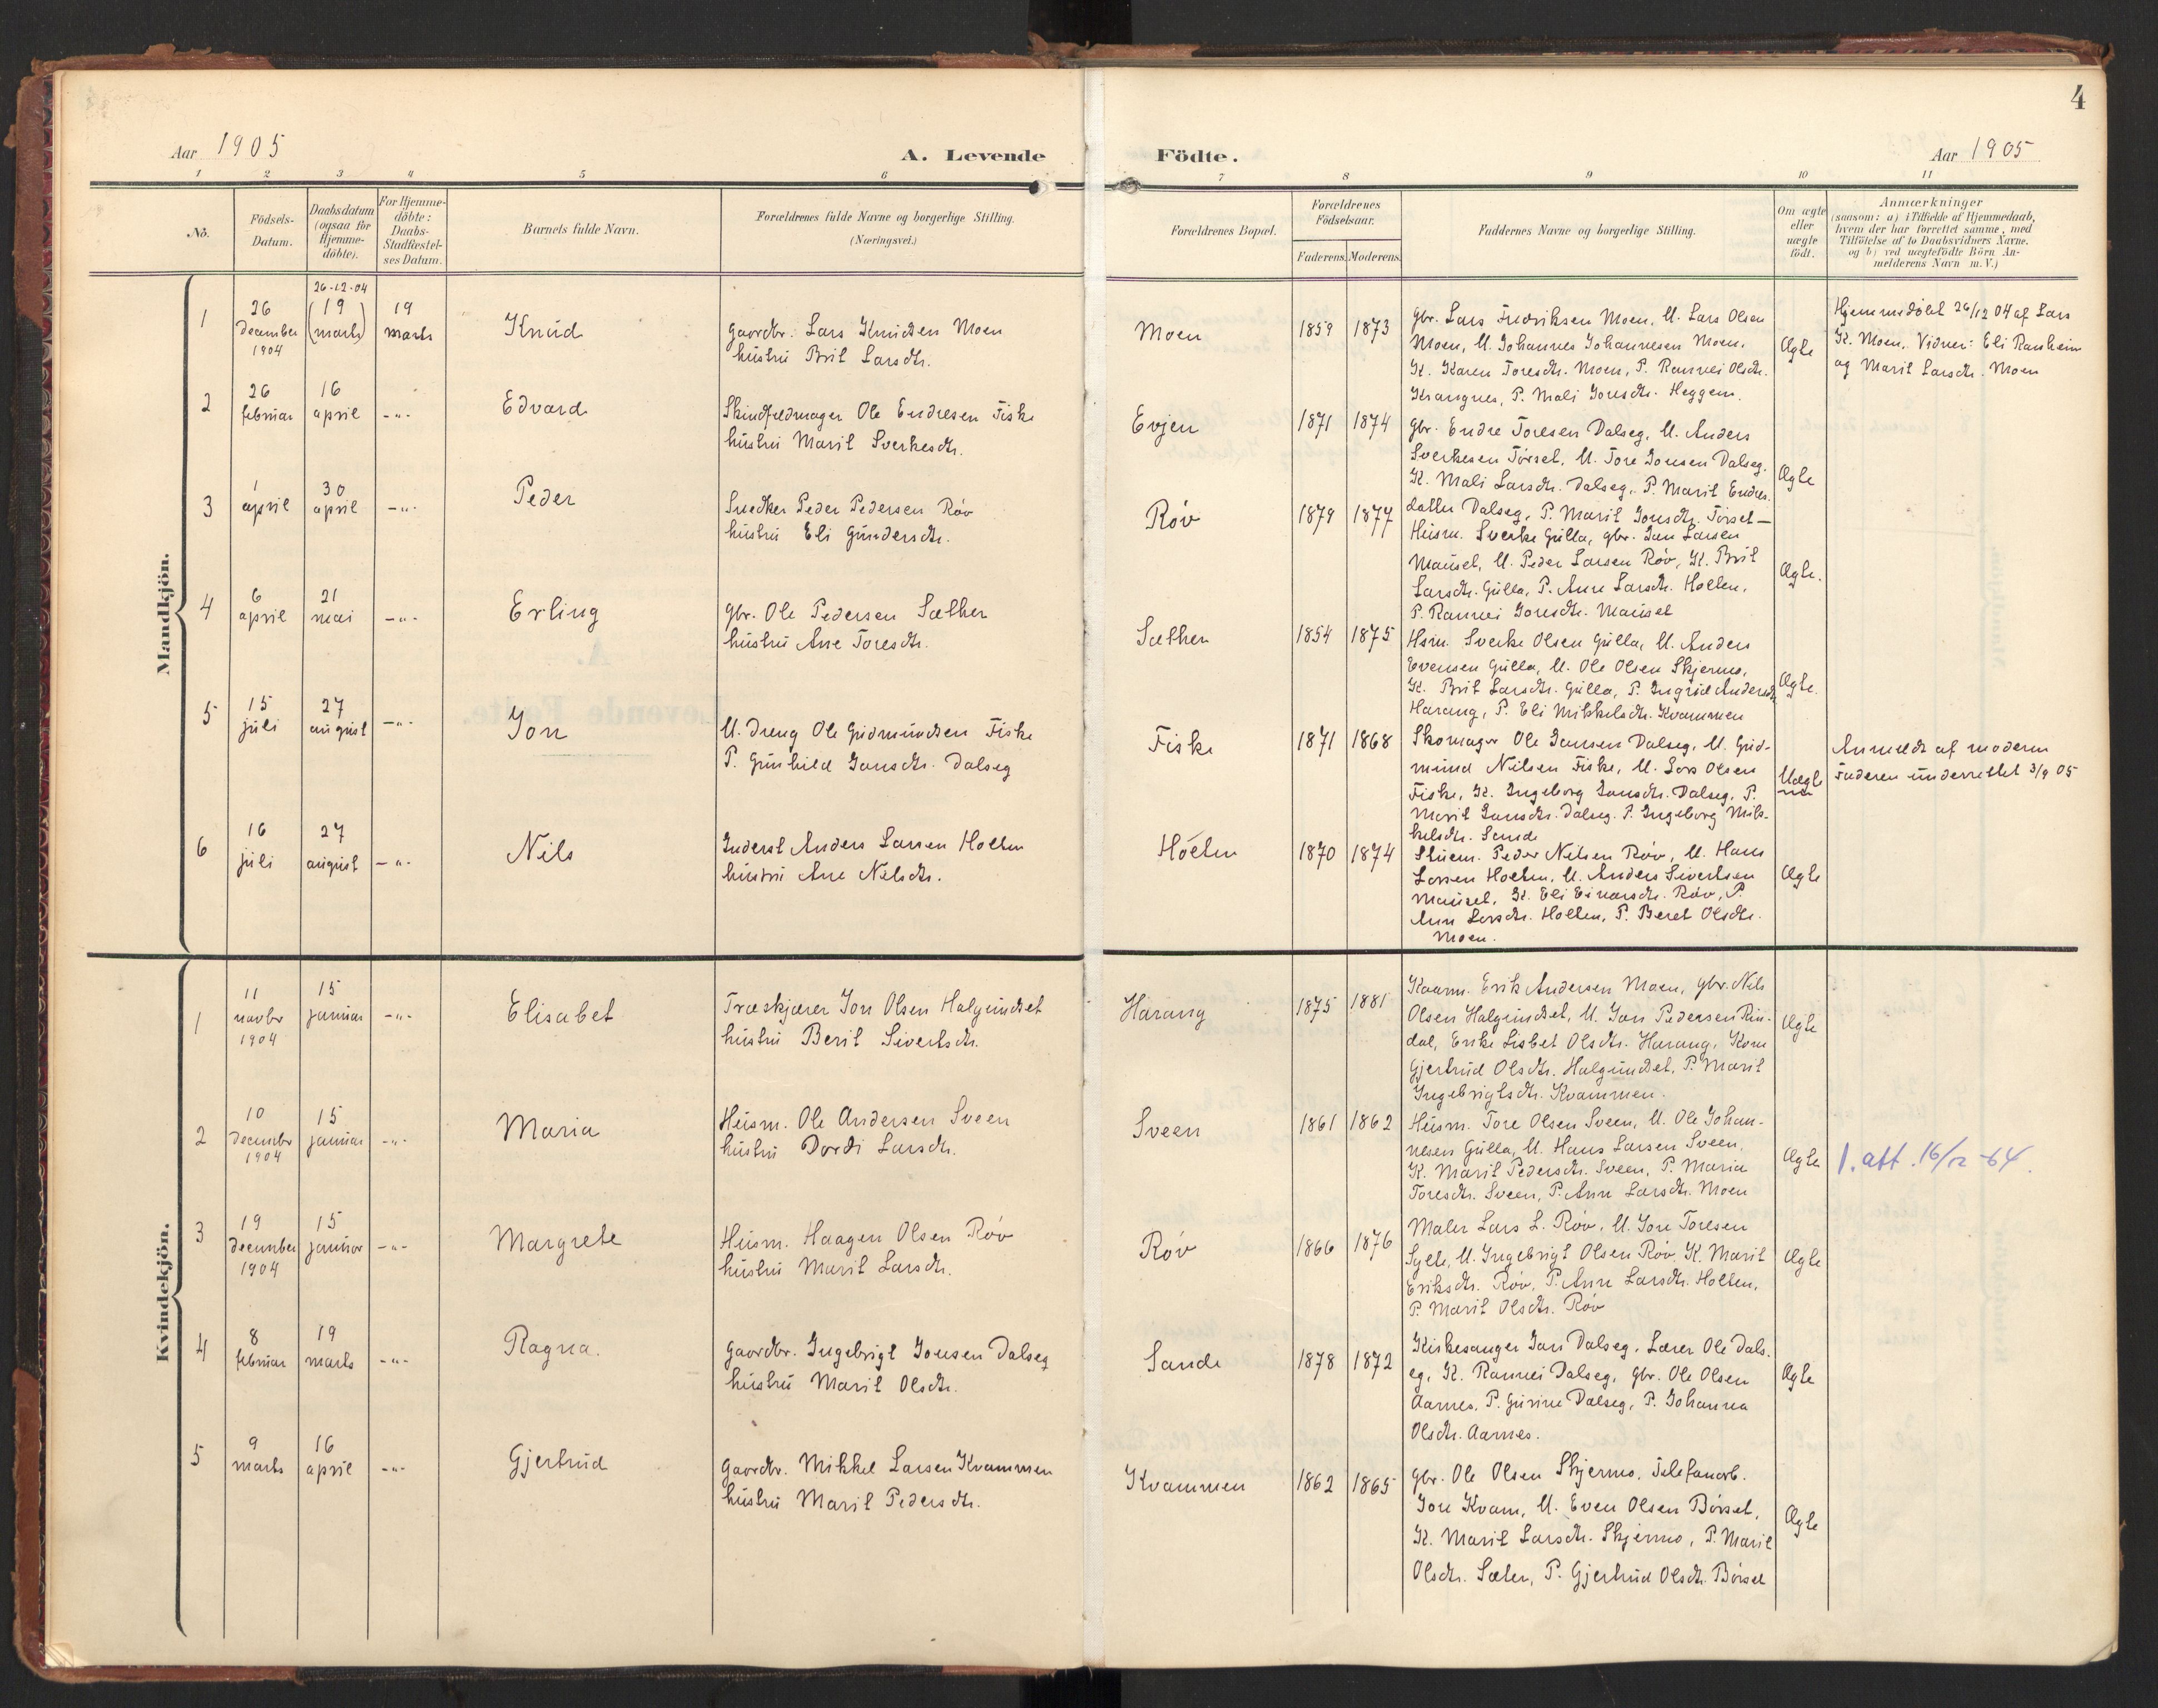 4
Aar 1905
A. Levende
Födte.
Aar 1905
1 2 3 4 5 6 7 8 9 10 11
No.
Födsels-
Datum.
Daabsdatum
(ogsaa for
Hjemme-
döbte).
For Hjemme-
döbte:
Daabs-
Stadfæstel-
ses Datum.
Barnets fulde Navn.
Forældrenes fulde Navne og borgerlige Stilling.
(Næringsvei.)
Forældrenes Bopæl.
Forældrenes
Födselsaar.
Faderens. Moderens.
Faddernes Navne og borgerlige Stilling.
Om ægte
eller
uægte
födt.
Anmærkninger
(saasom: a) i Tilfælde af Hjemmedaab,
hvem der har forrettet samme, med
Tilföielse af to Daabsvidners Navne.
og b) ved uægtefödte Börn An-
melderens Navn m. V.)
Mandkjön.
1
26
december
1904
26-12-04
(19
marts)
19
marts
Knud
Gaardbr. Lars Knudsen Moen
hustru Brit Larsdtr.
Moen
1859 1873
Gbr. Lars Fredriksen Moen, U. Lars Olsen
Moen, U. Johannes Johannesen Moen,
K. Karen Toresdtr. Moen, P. Rannei Olsdtr.
Krangnes, P. Mali Jonsdtr. Heggem.
Ægte
Hjemmedøbt 26/12 04 af Lars
K. Moen. Vidner: Eli Ranheim
og Marit Larsdtr. Moen
2
26
februar
16
april
-"-
Edvard
Skindfeldmager Ole Endresen Fiske
hustru Marit Sverkesdtr.
Evjen
1871 1874
Gbr. Endre Toresen Dalseg, U. Anders
Sverkesen Tørset, U. Tore Jonsen Dalseg.
K. Mali Larsdtr. Dalseg, P. Marit Endres-
datter Dalseg, P. Marit Jonsdtr. Tørset —
Ægte
3
1
april
30
april
-"-
Peder
Snedker Peder Pedersen Røv
hustru Eli Gundersdtr.
Røv
1879 1877
Husm. Sverke Gulla, gbr. Jan Larsen
Mauset, U. Peder Larsen Røv, K. Brit
Larsdtr. Gulla, P. Ane Larsdtr. Holten,
P. Rannei Toresdtr. Mauset
Ægte.
4
6
april
21
mai
-"-
Erling
Gbr. Ole Pedersen Sæther
hustru Ane Toresdtr.
Sæther
1854 1875
Hsm. Sverke Olsen Gulla, U. Anders
Evensen Gulla, U. Ole Olsen Skjermo,
K. Brit Larsdtr. Gulla, P. Ingrid Andersdtr.
Harang, P. Eli Mikkelsdtr. Kvammen
Ægte.
5
15
juli
27
august
-"-
Jon
U. dreng Ole Gudmundsen Fiske
P. Gunhild Jansdtr. Dalseg
Fiske
1871 1868
Skomager Ole Jansen Dalseg, U. Gud-
mund Nilsen Fiske, U. Lars Olsen
Fiske, K. Ingeborg Jansdtr. Dalseg, P.
Marit Jansdtr. Dalseg. P. Ingeborg Mik-
kelsdtr. Sande
Uægte
Anmeldt af moderen
Faderen underrettet 3/9 05
6
16
juli
27
august
-"-
Nils
Inderst Anders Larsen Holten
hustru Ane Nilsdtr.
Holten
1870 1874
Stuem. Peder Nilsen Røv, U. Hans
Larsen Holten, U. Anders Sivertsen
Mauset, K. Eli Einarsdtr. Røv, P.
Ane Larsdtr. Holten, P. Beret Olsdtr.
Moen.
Ægte
Kvindekjön.
1
11
novbr
1904
15
januar
-"-
Elisabet
Træskjærer Jon Olsen Halgundset
hustru Berit Sivertsdtr.
Harang
1875 1881
Kaarm. Erik Andersen Moen, gbr. Nils
Olsen Halgundset, U. Jan Pedersen Rin-
dal, Enke Lisbet Olsdtr. Harang, Kone
Gjertrud Olsdtr. Halgundset, P. Marit
Ingebrigtsdtr. Kvammen.
Ægte
2
10
decembr
1904
15
januar
-"-
Maria
Husm. Ole Andersen Sveen
hustru Dordi Larsdtr.
Sveen
1861 1862
Husm. Tore Olsen Sveen, U. Ole Johan-
nesen Gulla, U. Hans Larsen Sveen,
K. Marit Pedersdtr. Sveen, P. Maria
Toresdtr. Sveen, P. Ane Larsdtr. Moen
Ægte
1. att. 16/12-64.
3
19
december
1904
15
januar
-"-
Margrete
Husm. Haagen Olsen Røv
hustru Marit Larsdtr.
Røv
1866 1876
Maler Lars L. Røv, U. Jon Toresen
Sylte, U. Ingebrigt Olsen Røv, K. Marit
Eriksdtr. Røv, P. Ane Larsdtr. Holten,
P. Marit Olsdtr. Røv
Ægte
4
8
februar
19
marts
-"-
Ragna.
Gaardbr. Ingebrigt Jonsen Dalseg
hustru Marit Olsdtr.
Sande
1878 1872
Kirkesanger Jan Dalseg, Lærer Ole Dals-
eg, K. Rannei Dalseg, gbr. Ole Olsen
Aarnes, P. Gurine Dalseg, P. Johanna
Olsdtr. Aarnes.
Ægte
5
9
marts
16
april
-"-
Gjertrud
Gaardbr. Mikkel Larsen Kvammen
hustru Marit Pedersdtr.
Kvammen
1862 1865
Gbr. Ole Olsen Skjermo, Telefonarb.
Tore Kvam, U. Even Olsen Børset,
K. Marit Larsdtr. Skjermo, P. Marit
Olsdtr. Sæter, P. Gjertrud Olsdtr. Børset
Ægte